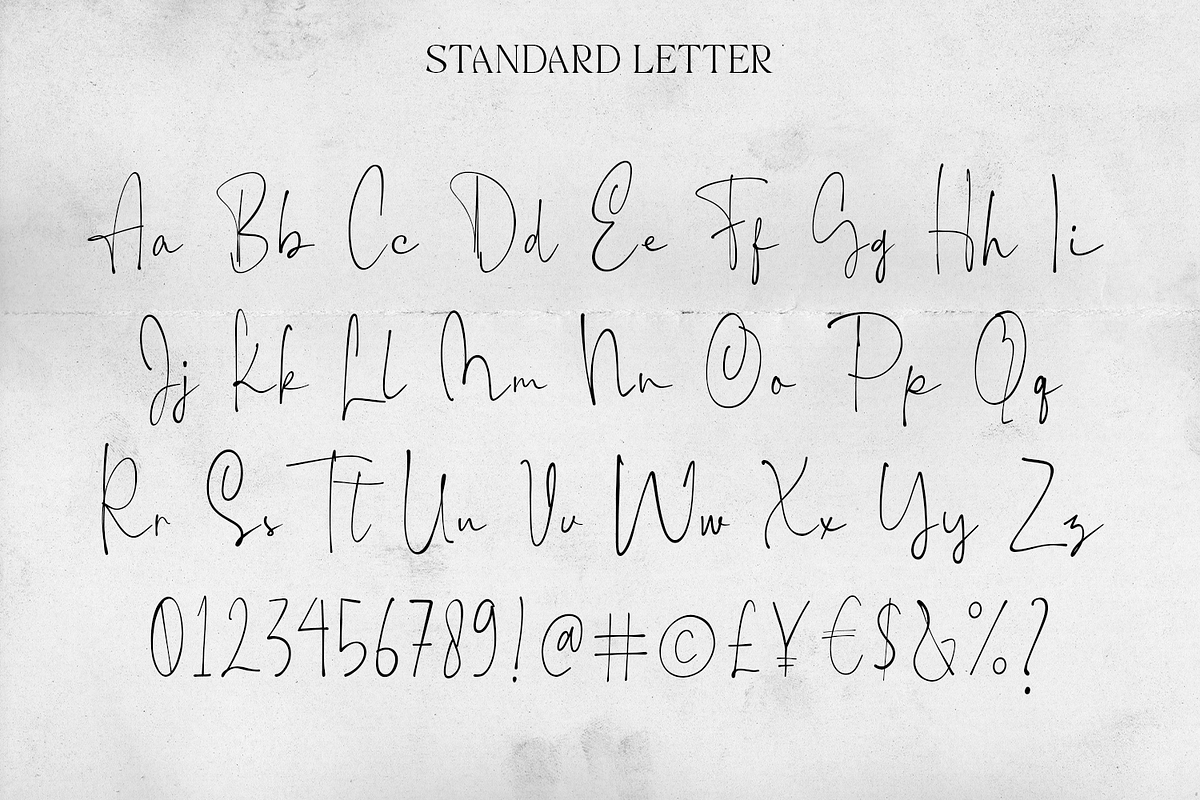 STANDARD LETTER
Aa Bb Cc Dd Ee Ff Gg Hh Ii
Jj Kk Ll Mm Nn Oo Pp Qq
Rr Ss Tt Uu Vv Ww Xx Yy Zz
0123456789!@#©£¥€$&%?